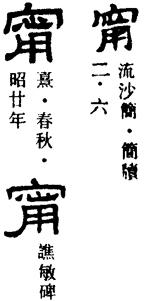 甯
流沙簡・簡牘
二・六
甯
熹・春秋・
昭廿年
甯
譙敏碑